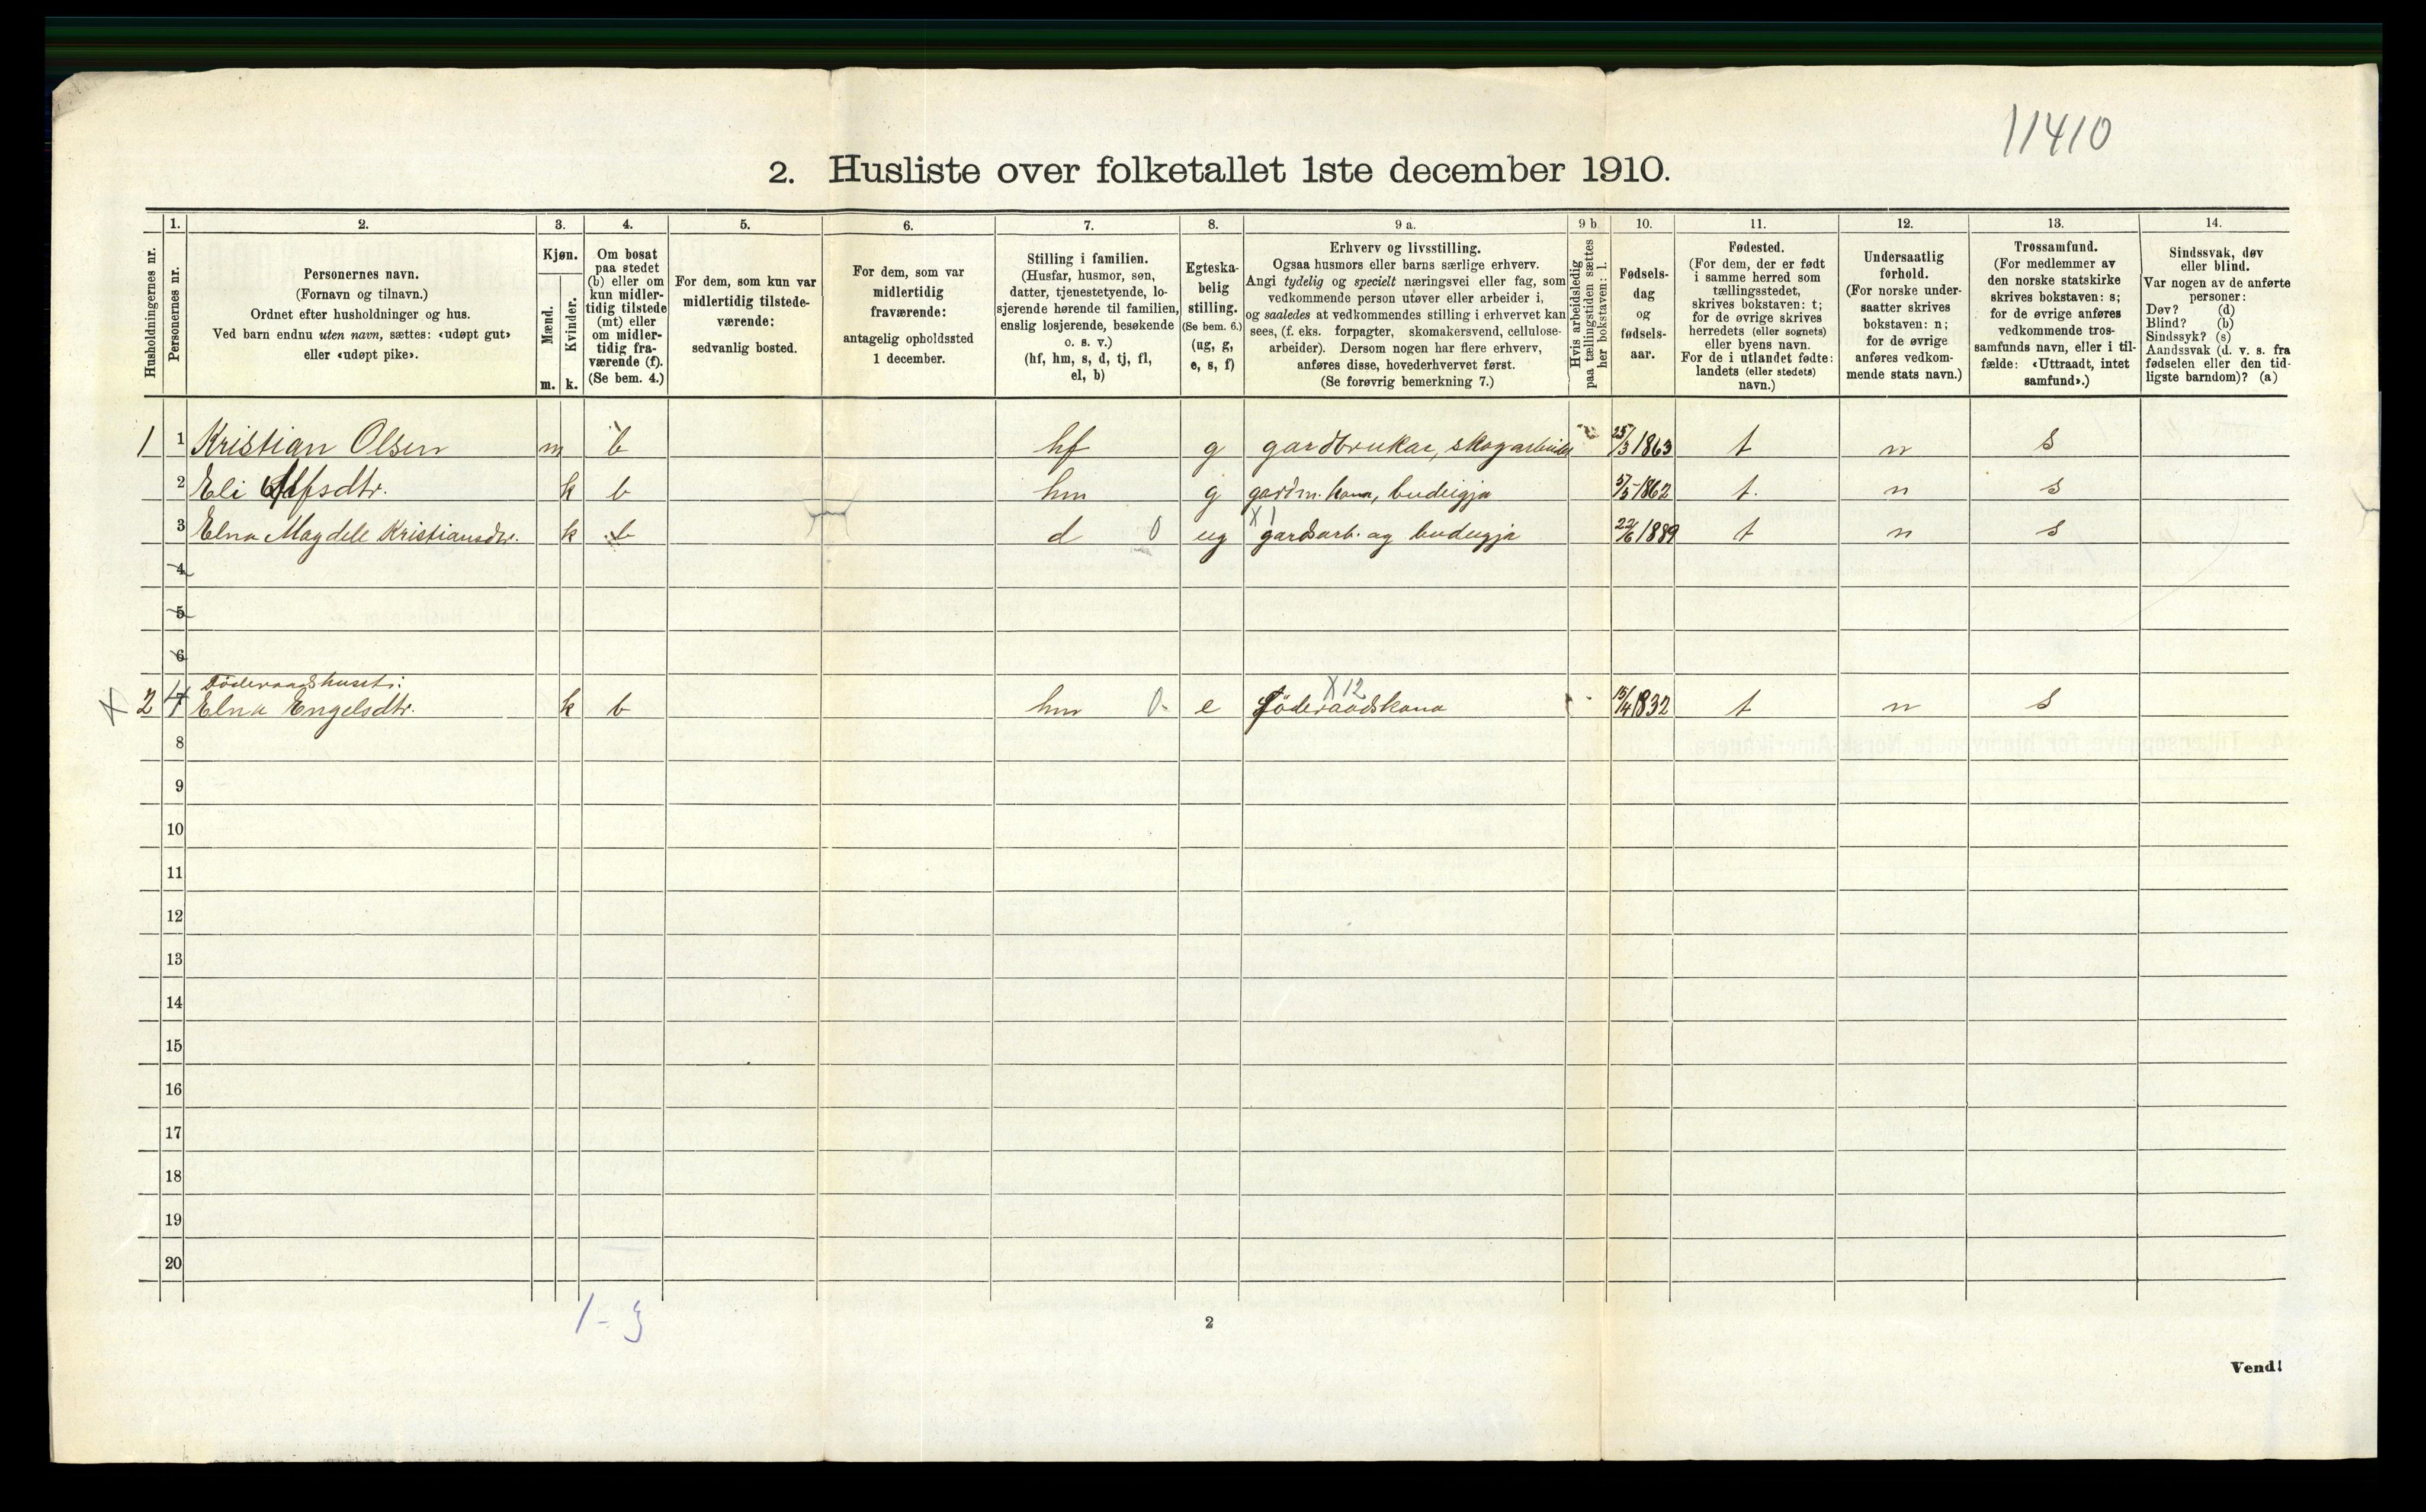 11410
2. Husliste over folketallet 1ste december 1910.
Husholdningernes nr.
1.
Personernes nr.
2.
Personernes navn.
(Fornavn og tilnavn.)
Ordnet efter husholdninger og hus.
Ved barn endnu uten navn, sættes: «udøpt gut»
eller «udøpt pike».
3.
Kjøn.
Mænd.
Kvinder.
m. k.
4.
Om bosat
paa stedet
(b) eller om
kun midler-
tidig tilstede
(mt) eller
om midler-
tidig fra-
værende (f).
(Se bem. 4.)
5.
For dem, som kun var
midlertidig tilstede-
værende:
sedvanlig bosted.
6.
For dem, som var
midlertidig
fraværende:
antagelig opholdssted
1 december.
7.
Stilling i familien.
(Husfar, husmor, søn,
datter, tjenestetyende, lo-
sjerende hørende til familien,
enslig losjerende, besøkende
o. s. v.)
(hf, hm, s, d, tj, fl,
el, b)
8.
Egteska-
belig
stilling.
(Se bem. 6.)
(ug, g,
e, s, f)
9 a.
Erhverv og livsstilling.
Ogsaa husmors eller barns særlige erhverv.
Angi tydelig og specielt næringsvei eller fag, som
vedkommende person utøver eller arbeider i,
og saaledes at vedkommendes stilling i erhvervet kan
sees, (f. eks. forpagter, skomakersvend, cellulose-
arbeider). Dersom nogen har flere erhverv,
anføres disse, hovederhvervet først.
(Se forøvrig bemerkning 7.)
9 b
Hvis arbeidsledig
paa tællingstiden sættes
her bokstaven: l.
10.
Fødsels-
dag
og
fødsels-
aar.
11.
Fødested.
(For dem, der er født
i samme herred som
tællingsstedet,
skrives bokstaven: t;
for de øvrige skrives
herredets (eller sognets)
eller byens navn.
For de i utlandet fødte:
landets (eller stedets)
navn.)
12.
Undersaatlig
forhold.
(For norske under-
saatter skrives
bokstaven: n;
for de øvrige
anføres vedkom-
mende stats navn.)
13.
Trossamfund.
(For medlemmer av
den norske statskirke
skrives bokstaven: s;
for de øvrige anføres
vedkommende tros-
samfunds navn, eller i til-
fælde: «Uttraadt, intet
samfund».)
14.
Sindssvak, døv
eller blind.
Var nogen av de anførte
personer:
Døv? (d)
Blind? (b)
Sindssyk? (s)
Aandssvak (d. v. s. fra
fødselen eller den tid-
ligste barndom)? (a)
1 1 Kristian Olsen m b hf g gardbrukar, skogarbeider 25/3 1863 t n s
2 Eli Alfsdtr. k b hm g gardm. kona, budeigja 5/5-1862 t. n s
X 1
3 Elna Magdele Kristiansdtr. k b d 0 ug gardsarb. og budeigja 22/6 1889 t n s
4
5
6
Föderaadshuset:
X 12
X 2 4 7 Elna Engelsdtr. k b hm 0- e Föderaadskona 15/4 1832 t n s
8
9
10
11
12
13
14
15
16
17
18
19
20
1 - 3
2
Vend!